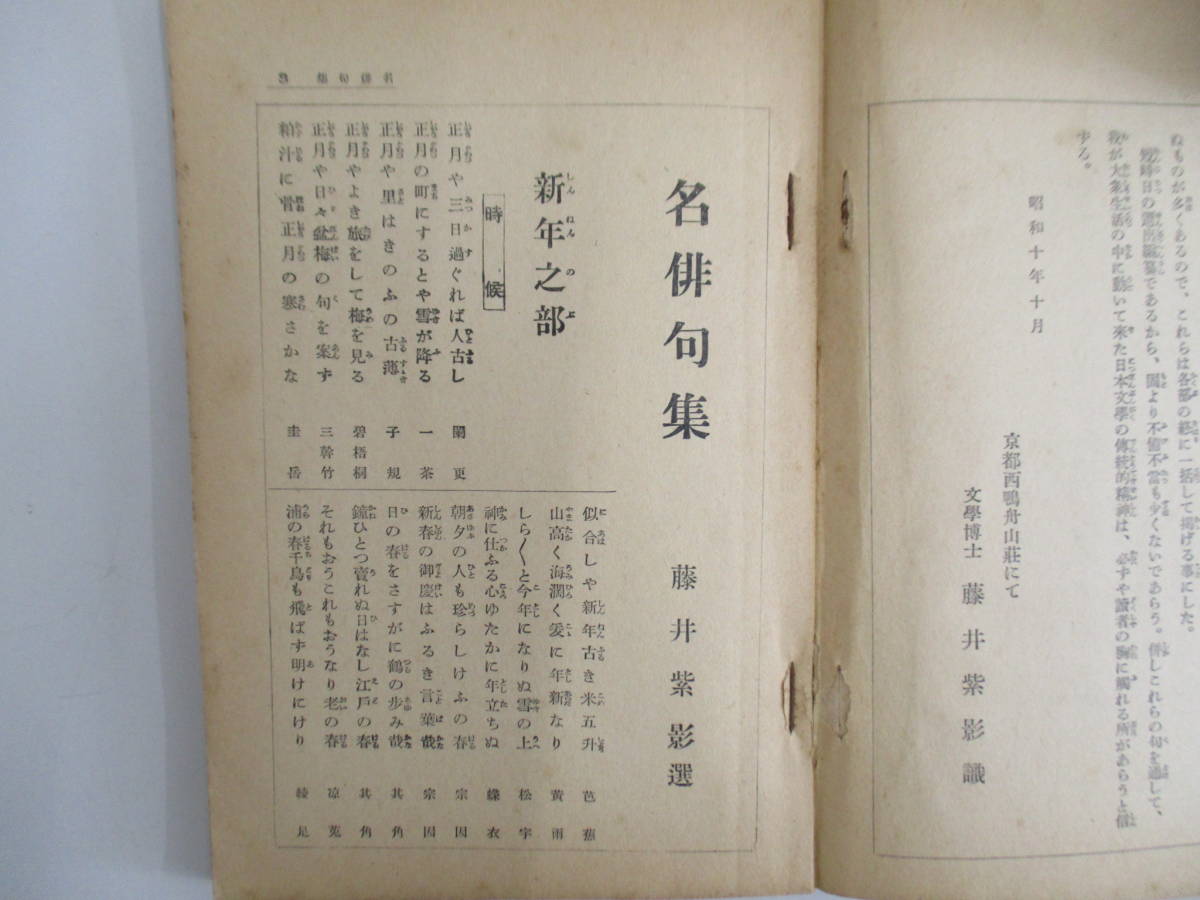 ぬものが多くあるので、これらは各部の終に一括して掲げる事にした。
短時日の選出編纂であるから、固より不備不當も少くないであらう。併しこれらの句を通して、
我が大衆生活の中に動いて来た日本文學の傳統的精神は、必ずや讀者の胸に觸れる所があらうと信
ずる。
昭和十年十月
京都西鴨舟山莊にて
文學博士 藤井紫影識
名俳句集 3
名俳句集 藤井紫影選
新年之部
時候
正月や三日過ぐれば人古し 闌更
正月の町にするとや雪が降る 一茶
正月や里はきのふの古薄 子規
正月やよき旅をして梅を見る 碧梧桐
正月や日々盆梅の句を案ず 三幹竹
粕汁に骨正月の寒さかな 圭岳
似合しや新年古き米五升 芭蕉
山高く海濶く爰に年新なり 黄雨
しら〱と今年になりぬ雪の上 松宇
神に仕ふる心ゆたかに年立ちぬ 衣
朝夕の人も珍らしけふの春 宗因
新春の御慶はふるき言葉哉 宗因
日の春をさすがに鶴の歩み哉 其角
鐘ひとつ賣れぬ日はなし江戸の春 其角
それもおうこれもおうなり老の春 凉菟
浦の春千鳥も飛ばず明けにけり 綾足